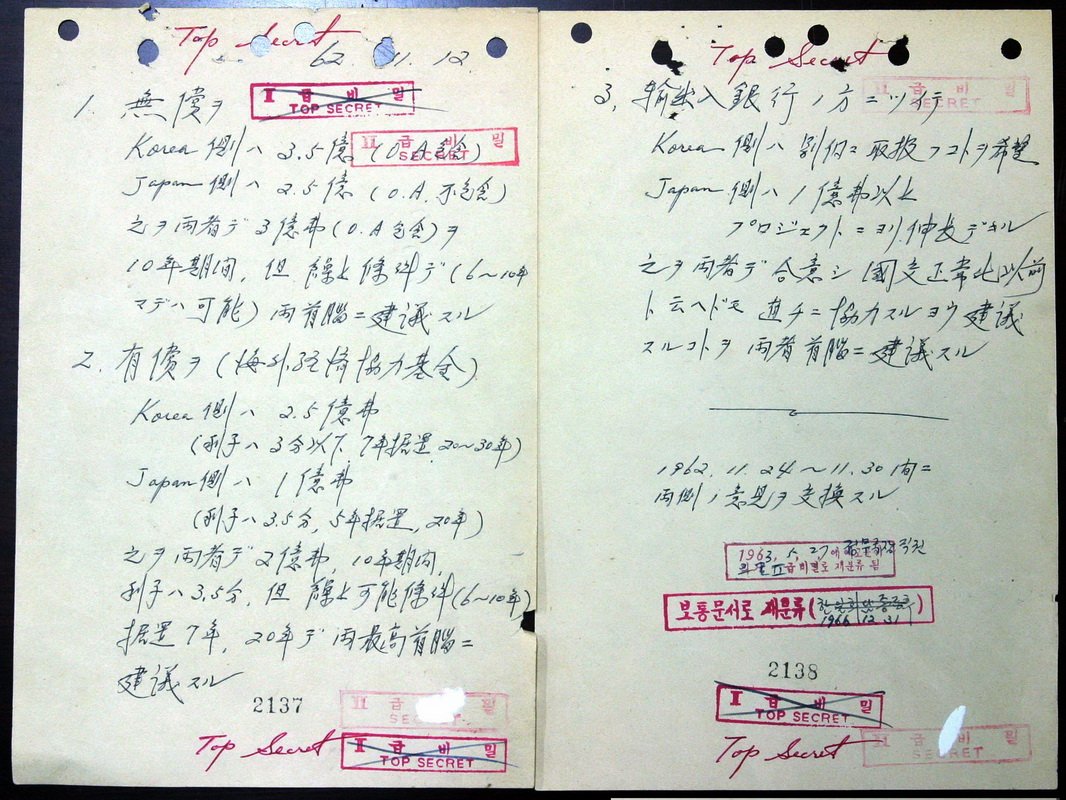 Top Secret
62. 11. 12
Ⅰ 급 비 밀
TOP SECRET
Ⅱ 급 비 밀
SECRET
1. 無償ヲ
Korea 側ハ 3.5億 (O.A 包含)
Japan 側ハ 2.5億 (O.A. 不包含)
之ヲ両者デ 3億弗 (O.A 包含) ヲ
10年期间, 但 繰上條件デ (6~10年
マデハ可能) 両首脳ニ建議スル
2. 有償ヲ (海外経済協力基金)
Korea 側ハ 2.5億弗
(利子ハ 3分以下, 7年据置, 20~30年)
Japan 側ハ 1億弗
(利子ハ 3.5分, 5年据置, 20年)
之ヲ両者デ 2億弗, 10年期间,
利子ハ 3.5分, 但 繰上可能條件 (6~10年)
据置 7年, 20年デ両最高首脳ニ
建議スル
2137
Ⅱ 급 비 밀
SEC
Top Secret
Ⅰ 급 비 밀
TOP SECRET
Top Secret
Ⅱ 급 비 밀
SECRET
3. 輸出入銀行ノ方ニツイテ
Korea 側ハ 別個ニ取扱フコトヲ希望
Japan 側ハ 1億弗以上
プロジェクトニヨリ伸長デキル
之ヲ両者デ合意シ国交正常化以前
ト云ヘドモ直チニ協力スルヨウ建議
スルコトヲ両者首脳ニ建議スル
1962. 11. 24 ~ 11. 30 间ニ
両側ノ意見ヲ交換スル
1963. 5. 27 에 직권
Ⅱ급비밀로 재분류 됨
보통문서로 재분류 (
1966. 12. 31
)
2138
Ⅰ 급 비 밀
TOP SECRET
Top Secret
Ⅱ 급 비 밀